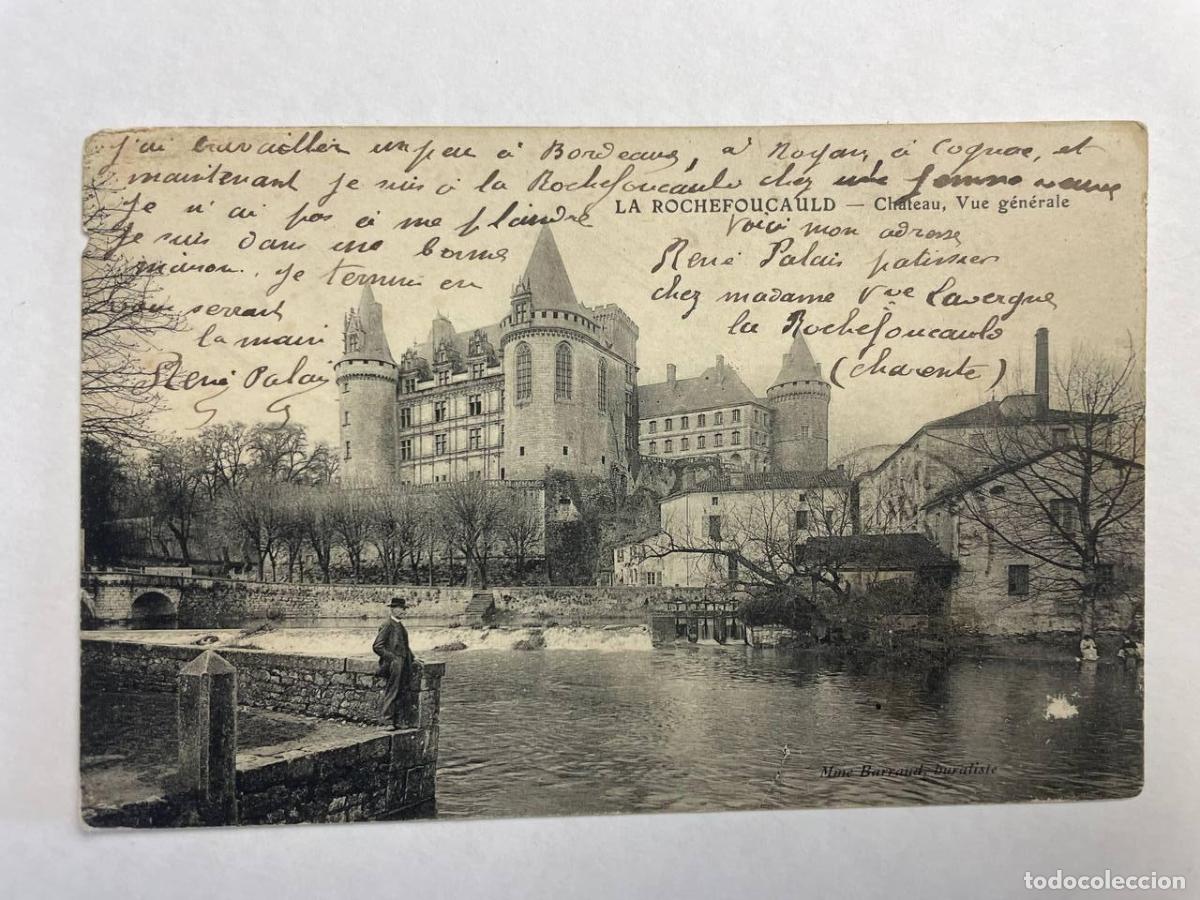 j'ai travailler un peu à Bordeaux, a Royan, à Cognac, et
maintenant je suis à la Rochefoucauld chez une femme veuve
je n'ai pas à me plaindre
je suis dans une bonne
maison. je termine en
vous serrant
la main
René Palais
LA ROCHEFOUCAULD — Château, Vue générale
Voici mon adresse
René Palais patissier
chez madame Vve Lavergne
la Rochefoucauld
(Charente)
Mme Barraud, buraliste
todocoleccion